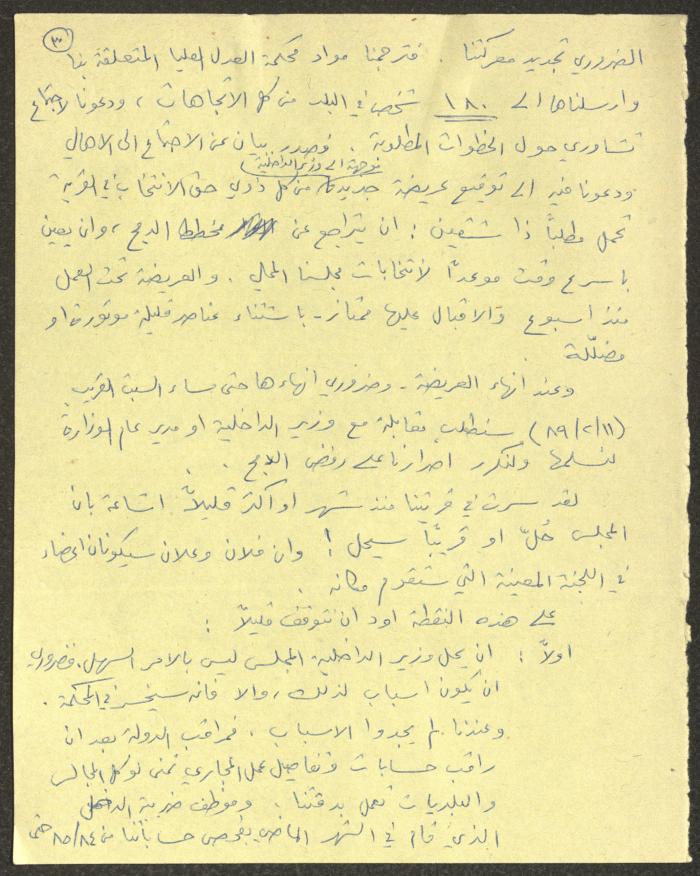 ٣
الضروري تجديد معركتنا . فترجمنا مواد محكمة العدل العليا المتعلقة بنا
وارسلناها الى ١٨٠ شخص في البلد من كل الاتجاهات ، ودعونا لاجتماع
تشاوري حول الخطوات المطلوبة . فصدر بيان عن الاجتماع الى الاهالي
موجهة الى وزير الداخلية
ودعونا فيه الى توقيع عريضة جديدة من كل ذوي حق الانتخاب في القرية
تحمل مطلباً ذا شقين : ان يتراجع عن مخطط الدمج ، وان يعين
باسرع وقت موعداً لانتخابات مجلسنا المحلي . والعريضة تحت العمل
منذ اسبوع والاقبال عليها ممتاز - باستثناء عناصر قليلة موتورة او
مضلّلة .
وعند انهاء العريضة - وضروري انهاءها حتى مساء السبت القريب
(٨٩/٢/١١) سنطلب مقابلة مع وزير الداخلية او مدير عام الوزارة
لنسلمها ولنكرر اصرارنا على رفض الدمج .
لقد سرت في قريتنا منذ شهر او اكثر قليلاً اشاعة بان
المجلس حُلّ او قريباً سيحل ! وان فلان وعلان سيكونان اعضاء
في اللجنة المعينة التي ستقوم مكانه .
على هذه النقطة اود ان نتوقف قليلاً :
اولاً : ان يحل وزير الداخلية المجلس ليس بالامر السهل . فضروري
ان يكون اسباب لذلك ، والا فانه سيخسر في المحكمة .
وعندنا لم يجدوا الاسباب . فمراقب الدولة بعد ان
راقب حسابات وتفاصيل عمل المجاري تمنى لو كل المجالس
والبلديات تعمل بدقتنا . وموظف ضريبة الدخل
الذي قام في الشهر الماضي بفحص حساباتنا من ٨٥/٨٤ حتى